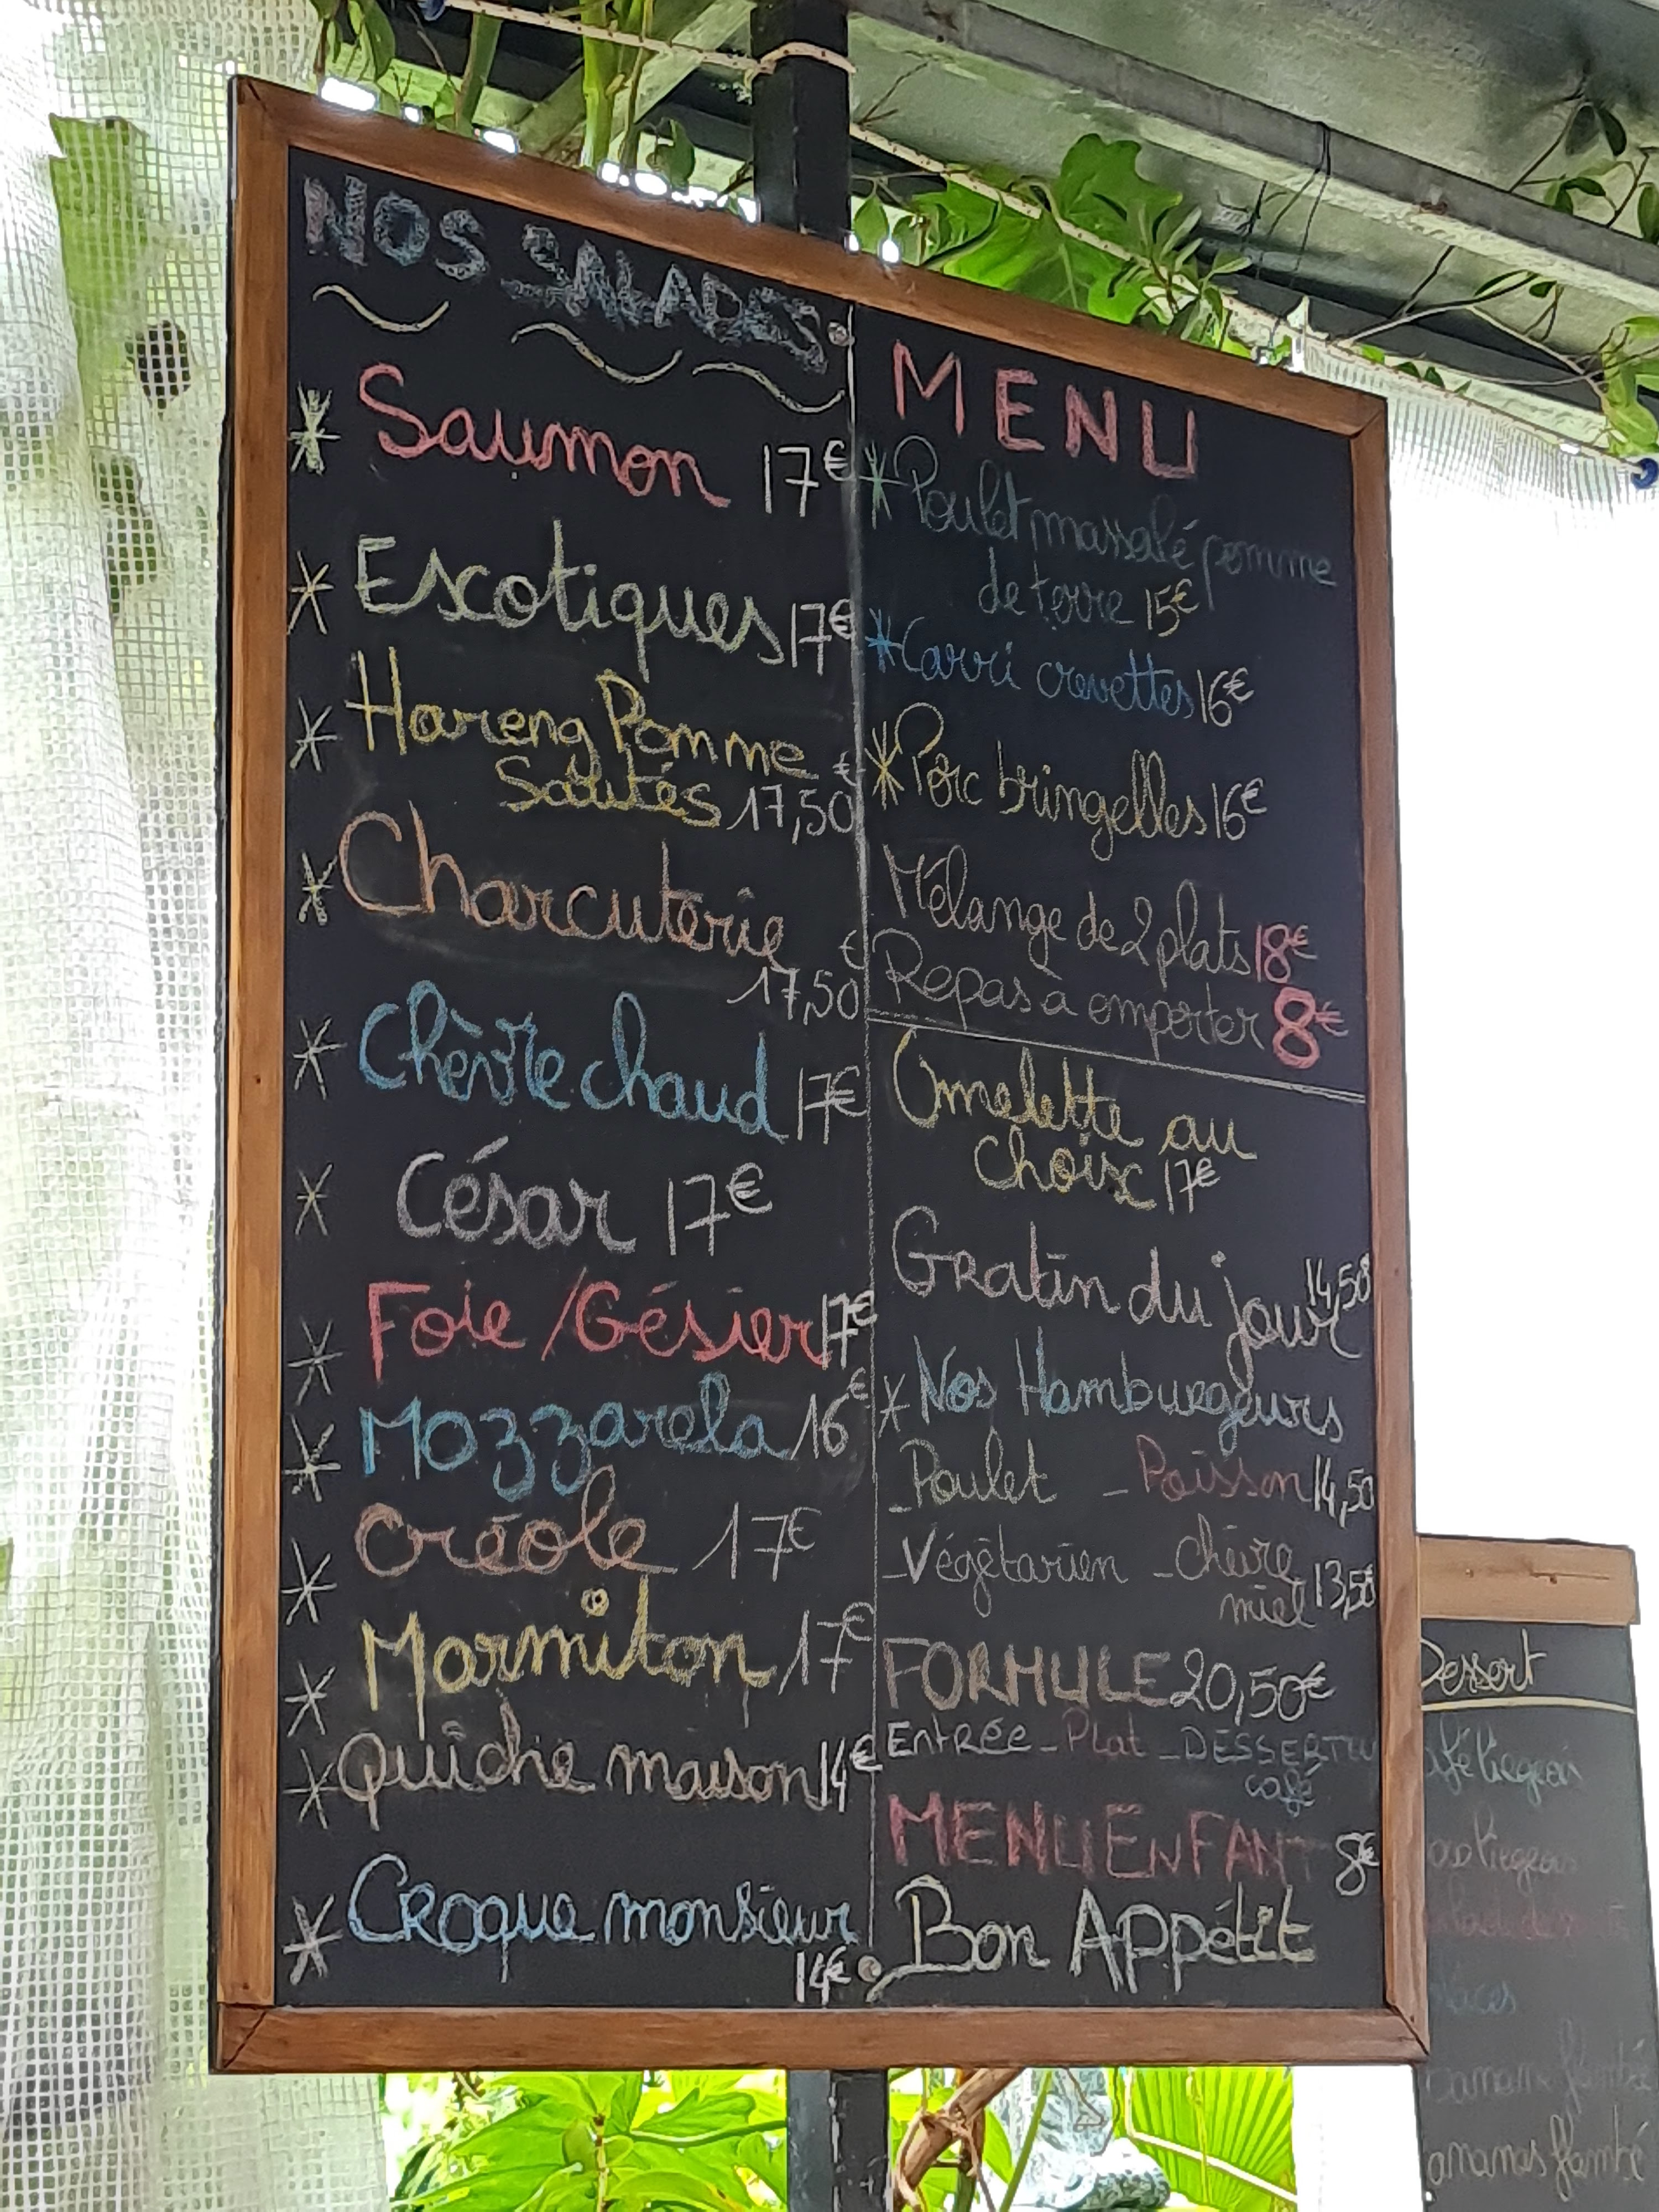 NOS SALADES
* Saumon 17€
* Escotiques 17€
* Hareng Pomme
Sautés 17,50€
* Charcuterie
17,50€
* Chèvre chaud 17€
* César 17€
* Foie/Gésier 17€
* Mozzarela 16€
* Créole 17€
* Marmiton 17€
* Quiche maison 14€
* Croque monsieur
14€
MENU
* Poulet massalé pomme
de terre 15€
* Carri crevettes 16€
* Porc bringelles 16€
Mélange de 2 plats 18€
Repas à emporter 8€
Omelette au
choix 17€
Gratin du jour 14,50€
* Nos Hamburgeurs
- Poulet - Poisson 14,50
- Végétarien - chèvre
miel 13,50
FORMULE 20,50€
Entrée - Plat - DESSERT ou
café
MENU ENFANT 8€
Bon Appétit
Dessert
afé liegeois
liegeois
laces
flambé
ananas flambé